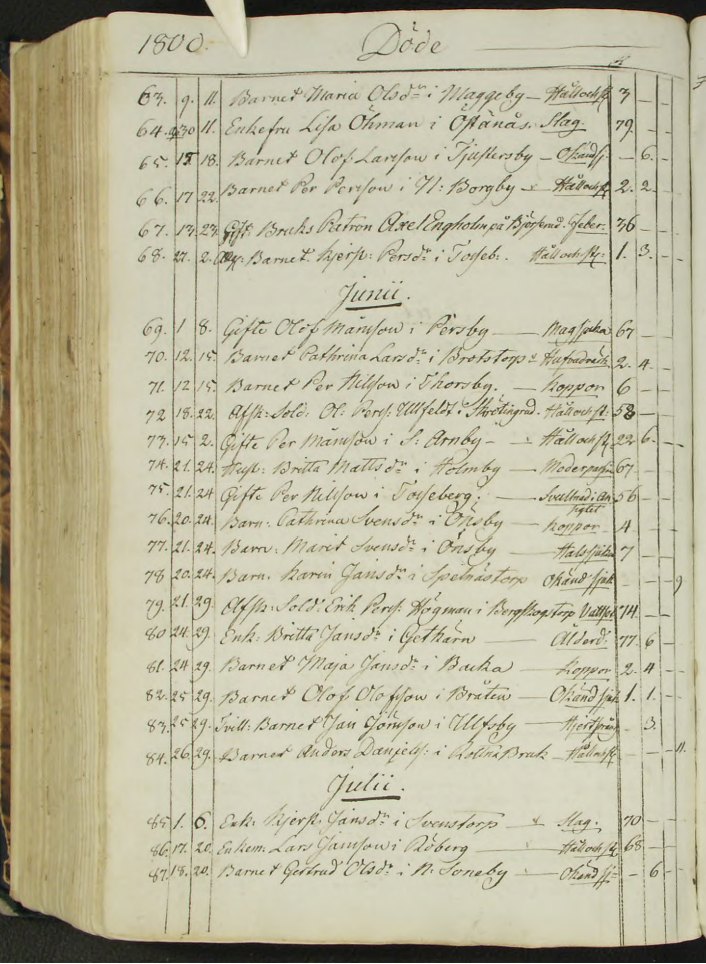 1800. Döde
63. 9. 11. Barnet Maria Olsdr i Maggeby - Håll och st. 3 - -
64. 30 11. Enkefru Lisa Öhman i Östänås. Slag. 79. - -
65. 15 18. Barnet Olof Larsson i Tjustersby - Okänd sj. - 6. -
66. 17 22. Barnet Per Persson i N: Borgby - Håll och st. 2. 2. -
67. 17. 23. Gift: Bruks Patron Axel Engholm på Björ feber. 36 -
68. 27. 2. Barnet Kjerst: Persdr i Tosseb:. Håll och sty: 1. 3. - -
Junii.
69. 1 8. Gifte Olof Månsson i Persby - Magsjuka 67 -
70. 12. 15. Barnet Cathrina Larsdr i Brototorp Hufvudvärk 2. 4. -
71. 12 15. Barnet Per Nilsson i Thorsby. - Koppor 6 -
72 18. 22. Afsk: Sold: Ol: Pers: Ullfeldt i Håll och st. 58 -
73. 15 2. Gifte Per Månsson i S: Arnby - Håll och st. 22 6. -
74. 21. 24. Hust: Britta Mattsdr i Holmby - Moderpass 67 -
75. 21. 24 Gifte Per Nilsson i Tosseberg. - Svullnad i An
sigtet 56 -
76. 20. 24. Barn: Cathrina Svensdr i Önsby - Koppor 4 -
77. 21. 24. Barn: Marit Svensdr i Önsby - Halssjuka 7 -
78 20. 24. Barn. Karin Jansdr i Spelnästorp Okänd sjuk - - 9
79. 21. 29. Afsk: Sold: Erik Pers: Högman i Bergskogstorp Vattsot 74 - -
80 24. 29. Enk: Britta Jansdr i Gethärn - Ålderd: 77. 6
81. 24 29. Barnet Maja Jansdr i Backa - Koppor 2. 4 - -
82. 25 29. Barnet Olof Olofsson i Bråten - Okänd sjuk 1. 1. -
83. 25 29. Tvill: Barnet Jan Jönsson i Ulfsby - Hjertsprång - 3.
84. 26. 29. Barnet Anders Danjels: i Rottna Bruk - Håll och st. - - 11.
Julii.
85. 1. 6. Enk: Kjerst. Jansdr i Svenstorp - Slag. 70 - -
86. 17. 20. Enkem: Lars Jansson i Röberg - Håll och sty 68 - -
87. 18. 20. Barnet Gertrud Olsdr i N: Soneby - Okänd sj - 6 -